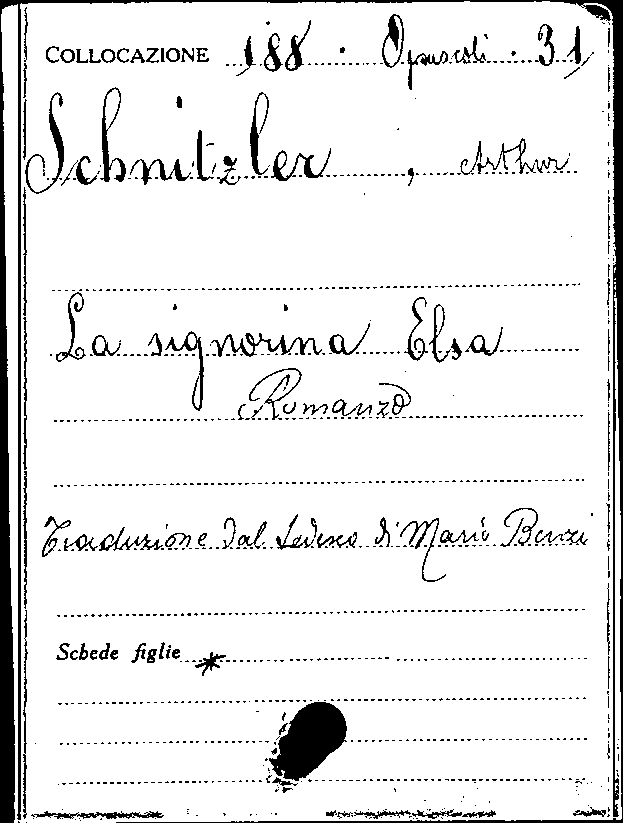 COLLOCAZIONE 188 · Opuscoli · 31
Schnitzler, Arthur
La signorina Elsa
Romanzo
Traduzione dal tedesco di Mario Benzi
Schede figlie *